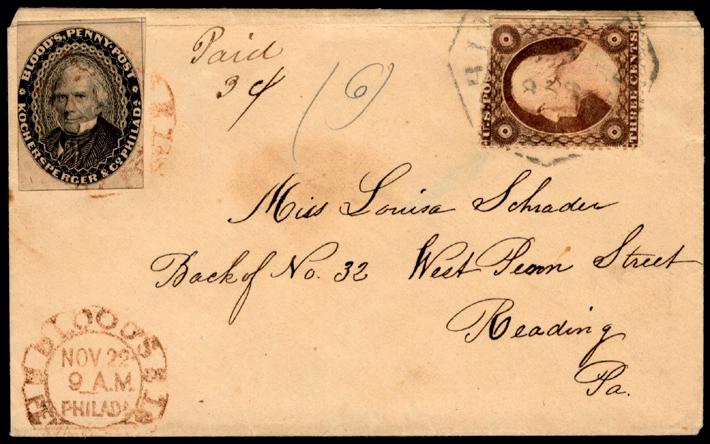 BLOOD'S PENNY POST
KOCHERSPERGER & CO. PHILADA
Paid
3 ¢
U.S. PO
THREE CENTS
Miss Louisa Schrader
Back of No. 32 West Penn Street
Reading
Pa.
BLOOD'S
NOV 22
9 A.M.
PHILADA